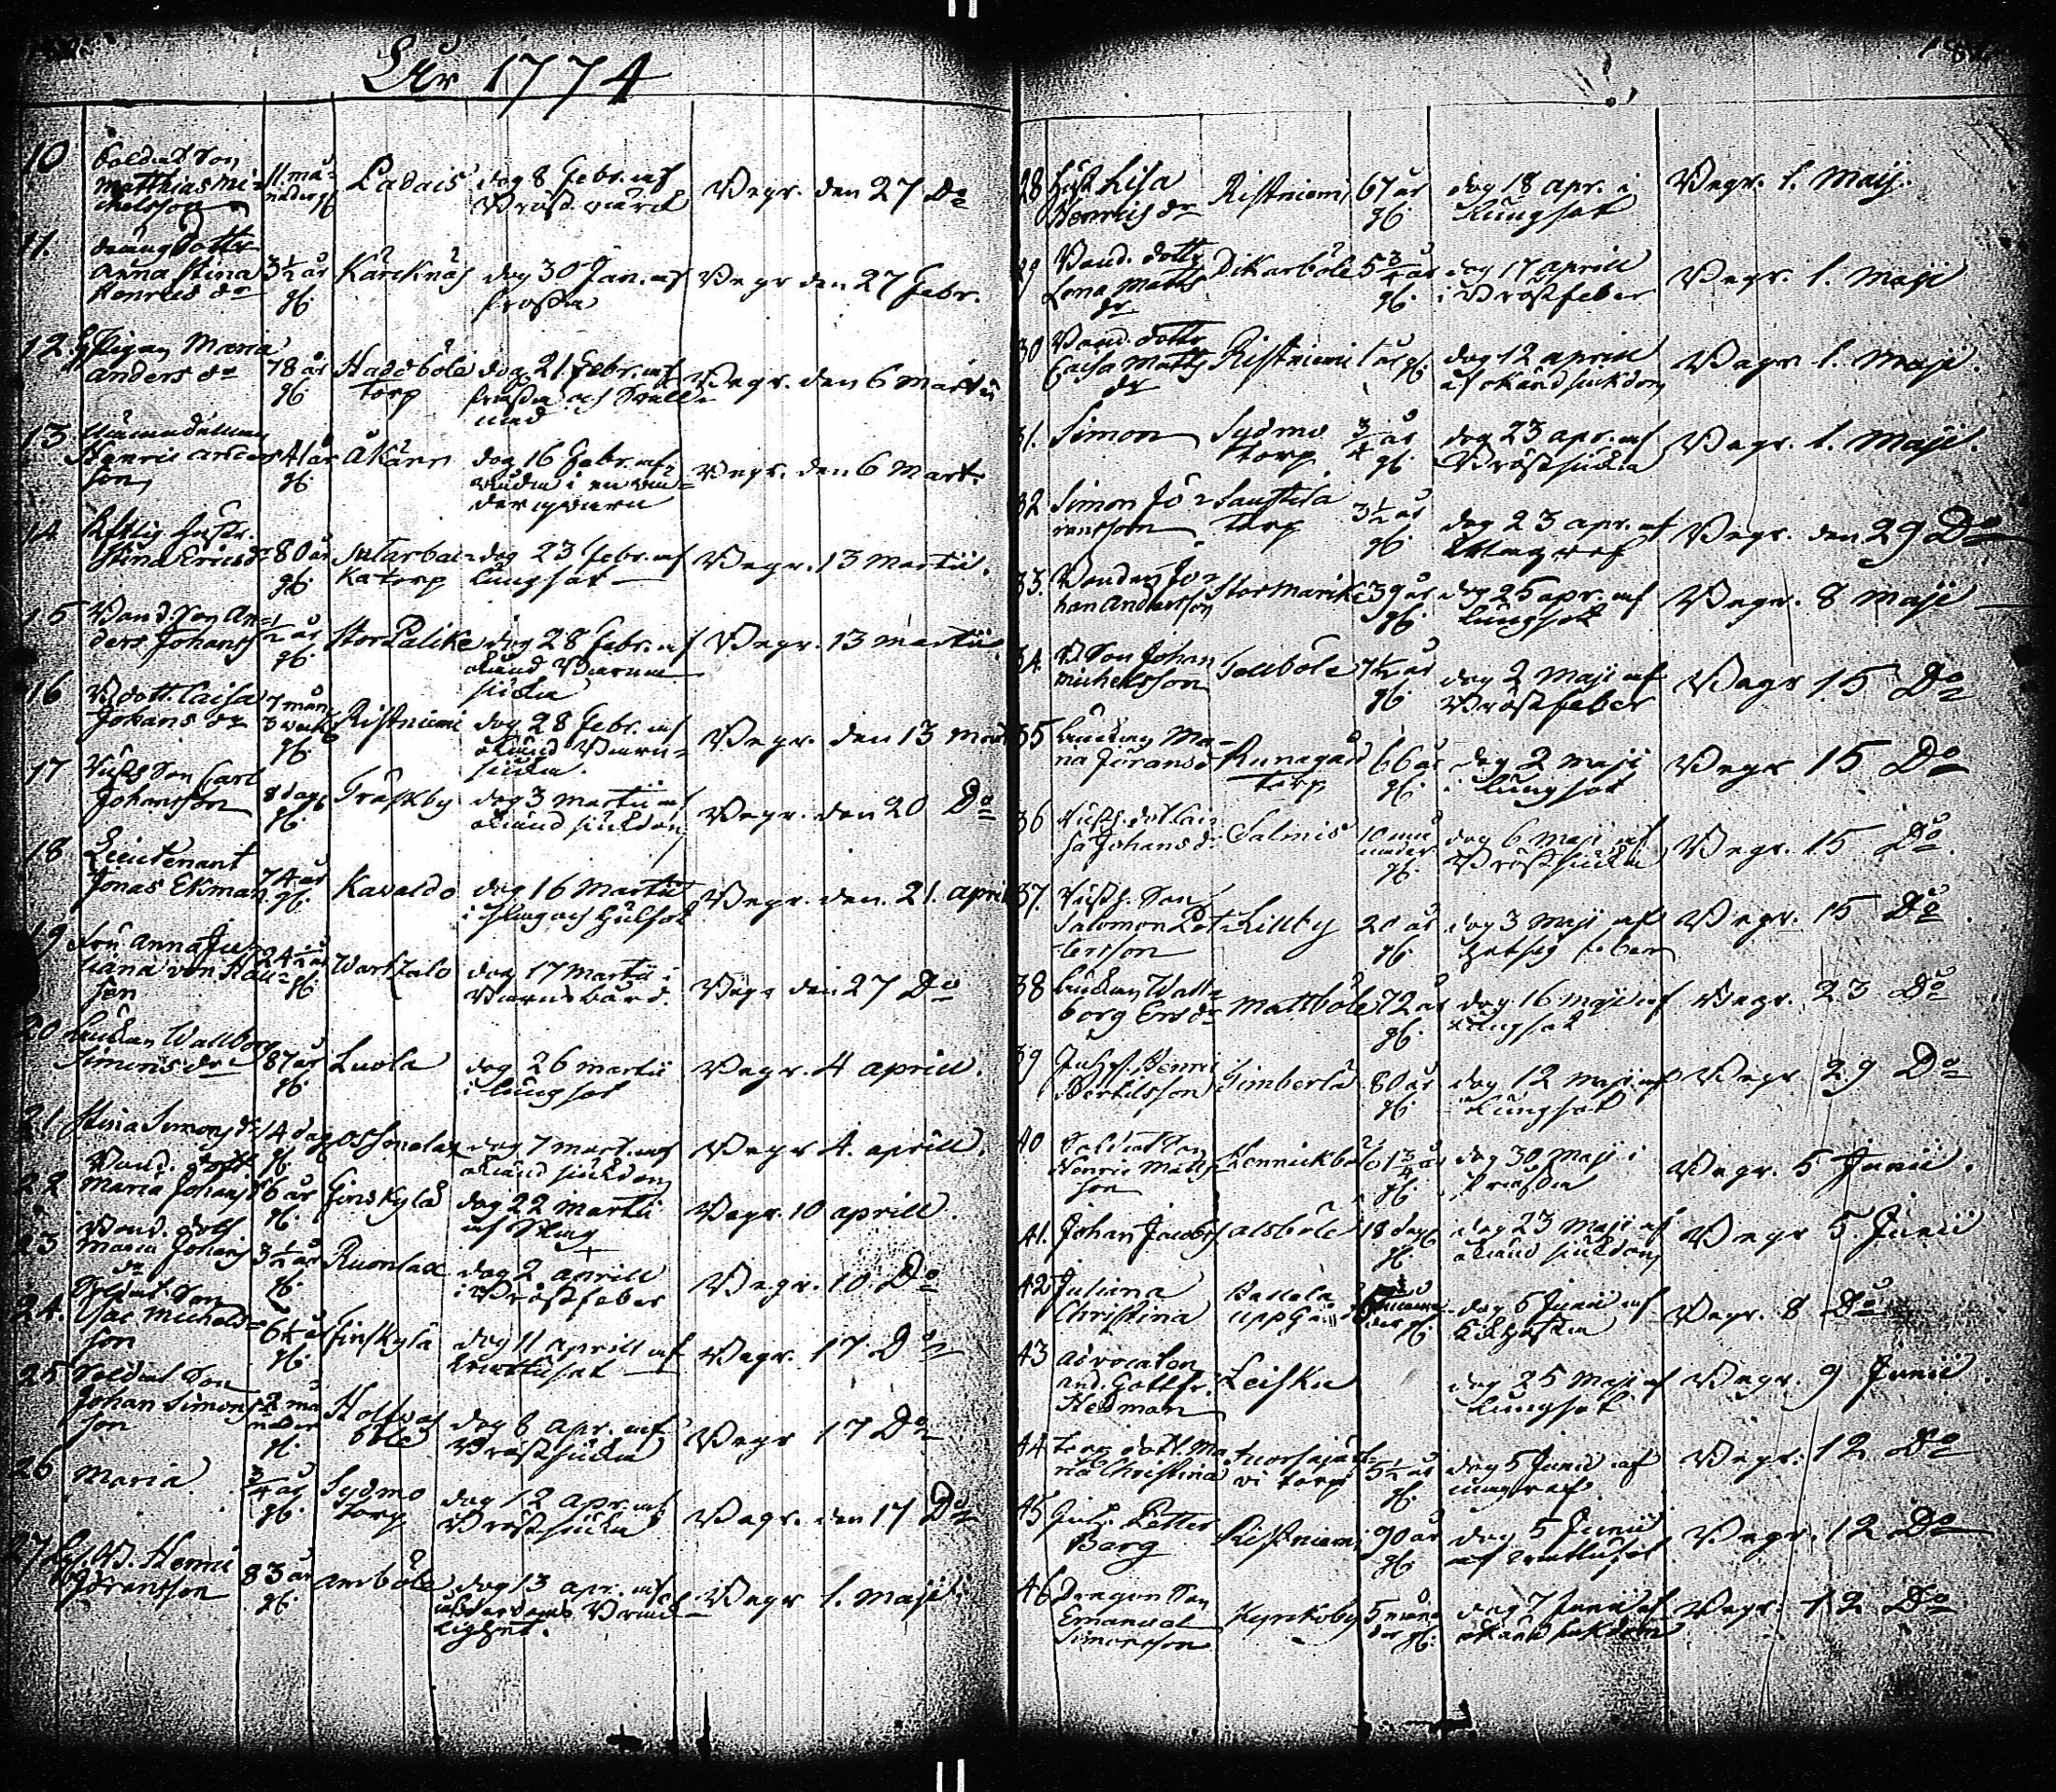 År 1774
10 Soldat Son
Matthias Mi=
chelsson
11 må=
nader gl.
Ladais
dog 8 Febr. af
Bröst wärck
Begr. den 27 Do
11. dräng dottr
Anna Stina
Henrics dr
3 1/2 år
gl.
Kärcknäs
dog 30 Jan. af
frossa
Begr den 27 Febr.
12 Pigan Maria
Anders dr
78 år
gl.
Haddböle
torp
dog 21 Febr. af
frossa och Swull=
nad
Begr. den 6 Martii
13
Henric Anders
son
41 år
gl.
Åkärr
dog 16 Febr. af
Begr. den 6 Mart.
14 Hustr.
Stina Erics dr
80 år
gl.
torp
dog 23 Febr. af
lungsot
Begr. 13 Martii.
15 Bond. Son An=
ders Johanss
1/2 år
gl.
Stor Palike
dog 28 Febr. af
okänd Barna
siuka
Begr. 13 Martii
16 B dott. Caisa
Johans dr
7 mån
3 weck
gl.
Ristniemi
dog 28 Febr. af
okänd Barn=
siuka.
Begr. den 13 Mart
17 Son Carl
Johansson
8 dag
gl.
Träskby
dog 3 Martii af
okänd siukdom
Begr. den 20 Do
18 Lieutenant
Jonas Ekman
74 år
gl.
Kavaldo
dog 16 Martii
i slag och Gulsot
Begr. den 21. april
19 Fru Anna Ju=
liana von Hau=
sen
24 1/2 år
gl.
Warfsalo
dog 17 Martii i
Barnsbörd.
Begr den 27 Do
20 Enkan Wallborg
Simons dr
87 år
gl.
Luola
dog 26 martii
i lungsot
Begr. 4 aprill.
21 Stina Simons dr
14 dag
gl.
dog 7 mart. af
okänd siukdom
Begr 4. aprill.
22 Bond. dott
Maria Johans dr
6 år
gl.
Finskylä
dog 22 martii
af Slag
Begr. 10 aprill.
23 Bond. dott.
Maria Johans
dr
3 1/2 år
gl.
Ruonlax
dog 2 aprill
i Bröstfeber
Begr. 10 Do
24. Soldat Son
Isac Michels=
son
6 1/2 år
gl.
Finskylä
dog 11 aprill af
Begr. 17 Do
25 Soldat Son
Johan Simons
son
2 må
nader
gl.
Holfvas
böle
dog 8 apr. af
Bröstsiuka
Begr 17 Do
26 Maria.
3/4 år
gl.
Sydmo
torp
dog 12 apr. af
Bröstsiuka
Begr. den 17 Do
27 Henric
Göransson
83 år
gl.
Amböle
dog 13 apr. af
ålderdoms Bräck=
lighet.
Begr 1. Maji.
28 Hust Lisa
Henrics dr
Ristniemi
67 år
gl.
dog 18 apr. i
lungsot
Begr. 1. Maij.
29 Bond. dottr
Lena Matts
dr
Dikarböle
5 3/4 år
gl.
dog 17 aprill
i Bröstfeber
Begr. 1. Maji
30 Bond. dottr
Caisa Matts
dr
Ristniemi
1 år gl.
dog 12 aprill
af okänd siukdom
Begr. 1. Maji.
31. Simon
Sydmo
torp
3/4 år
gl.
dog 23 apr. af
Bröstsiuka
Begr. 1. Maji.
32 Simon Jö=
ransson
torp
3 1/2 år
gl.
dog 23 apr. af
Begr. den 29 Do
33. Bonden Jo=
han Andersson
Stor Marike
39 år
gl.
dog 25 apr. af
lungsot
Begr. 8 Maji
34 B Son Johan
Michelsson
Tolböle
7 1/2 år
gl.
dog 2 Maji af
Bröstfeber
Begr 15 Do
35 Enckan Ma=
ria Jörans dr
Runagård
torp
66 år
gl.
dog 2 Maji
i lungsot
Begr 15 Do
36 dott Cai
sa Johans dr
Salmis
10 må
nader
gl.
dog 6 Maji af
Bröstsiuka
Begr. 15 Do.
37. Son
Salomon Pet=
tersson
Lillby
20 år
gl.
dog 3 Maji af
hetsig feber
Begr. 15 Do.
38 Enckan Wall=
borg Erics dr
Mattböle
72 år
gl.
dog 16 Maji af
lungsot
Begr. 23 Do
39 Henric
Bertilsson
Timberlä
80 år
gl.
dog 12 Maji af
lungsot
Begr 29 Do
40 Soldat Son
Henric Matts
son
Hennickböle
1 3/4 år
gl.
dog 30 Maji i
Begr. 5 Junii.
41. Johan Jacobss
Alsböle
18 dag
gl.
dog 23 Maji af
okänd siukdom
Begr 5. Junii
42 Juliana
Christina
uppgård
dog 6 Junii af
Kikhosta
Begr. 8 Do
43 Advocaten
And. Gottfr.
Hedman
Leisku
dog 25 Maji af
lungsot
Begr. 9 Junii.
44 torp dott. Ma
ria Christina
torp
5 1/2 år
gl.
dog 5 Junii af
Begr. 12 Do
45 Petter
Barg
Ristniemi
90 år
gl.
dog 5 Junii
Begr. 12 Do
46 Dragon Son
Emanuel
Simonsson
Kyrkoby
5 måna
der gl.
dog 7 Junii af
okänd siukdom
Begr. 12 Do